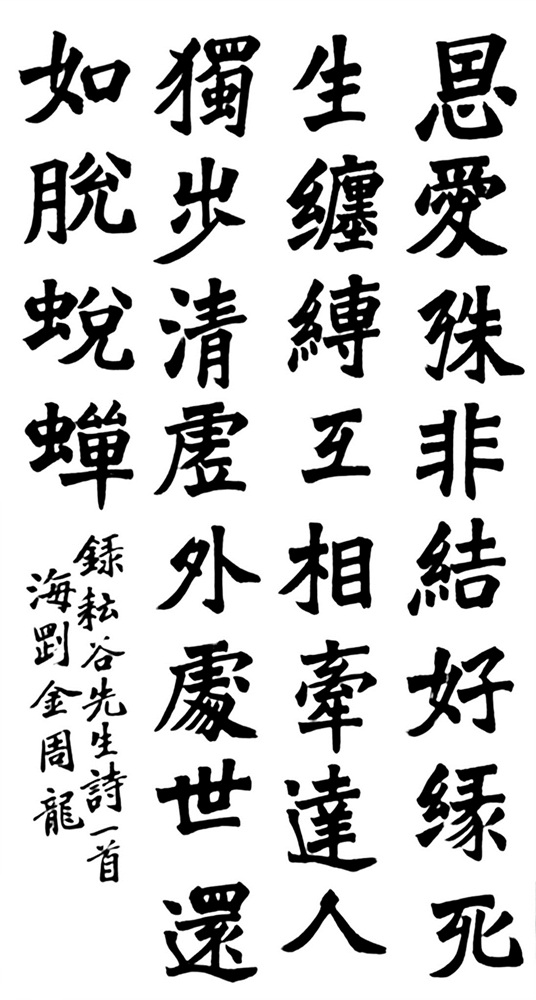 恩愛殊非結好緣死
生纏縛互相牽達人
獨步清虛外處世還
如脫蛻蟬
錄耘谷先生詩一首
海劉金周龍